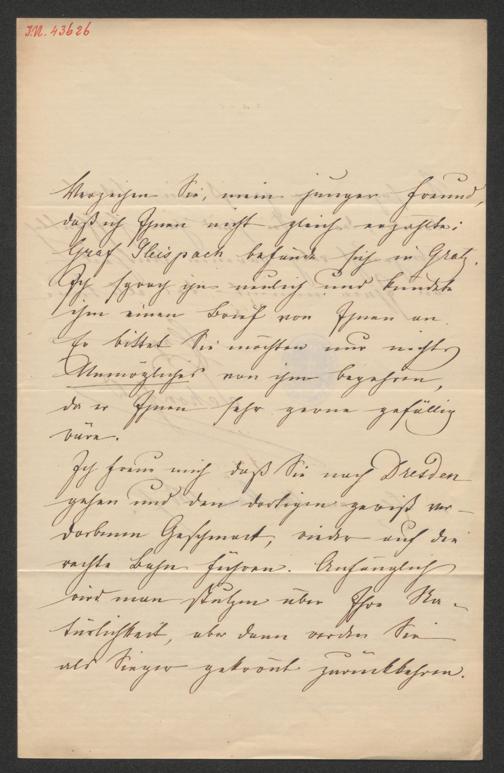 I.N. 43626
Verzeihen Sie, mein junger Freund,
daß ich Ihnen nicht gleich erzählte:
Graf Gleispach befände sich in Gratz.
Ich sprach ihn neulich und kündete
ihm einen Brief von Ihnen an.
Er bittet Sie möchten nur nichts
Unmögliches von ihm begehren,
da er Ihnen sehr gerne gefällig
wäre.
Ich freue mich daß Sie nach Dresden
gehen und den dortigen gewiß ver-
dorbenen Geschmack, wieder auf die
rechte Bahn führen. Anfänglich
wird man stutzen über Ihre Na-
türlichkeit, aber dann werden Sie
als Sieger gekrönt zurückkehren.